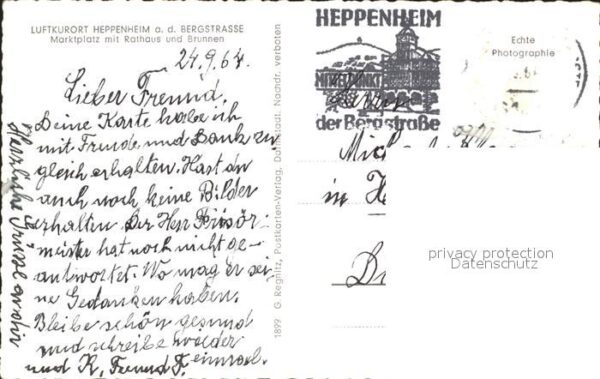 LUFTKURORT HEPPENHEIM a. d. BERGSTRASSE
Marktplatz mit Rathaus und Brunnen
24.9.64.
Lieber Freund,
Deine Karte habe ich
mit Freude und Dank zu
gleich erhalten. Hast du
auch noch keine Bilder
erhalten. Der Herr Frisör-
meister hat noch nicht ge-
antwortet. Wo mag er sei
ne Gedanken haben.
Bleibe schön gesund
und schreibe wieder
einmal.
und K, Freund F.
Herzliche Grüsse
1899 G. Regnitz, Postkarten-Verlag, Darmstadt. Nachdr. verboten
HEPPENHEIM
MITTELPUNKT
der Bergstraße
Echte
Photographie
Herrn
in
privacy protection
Datenschutz